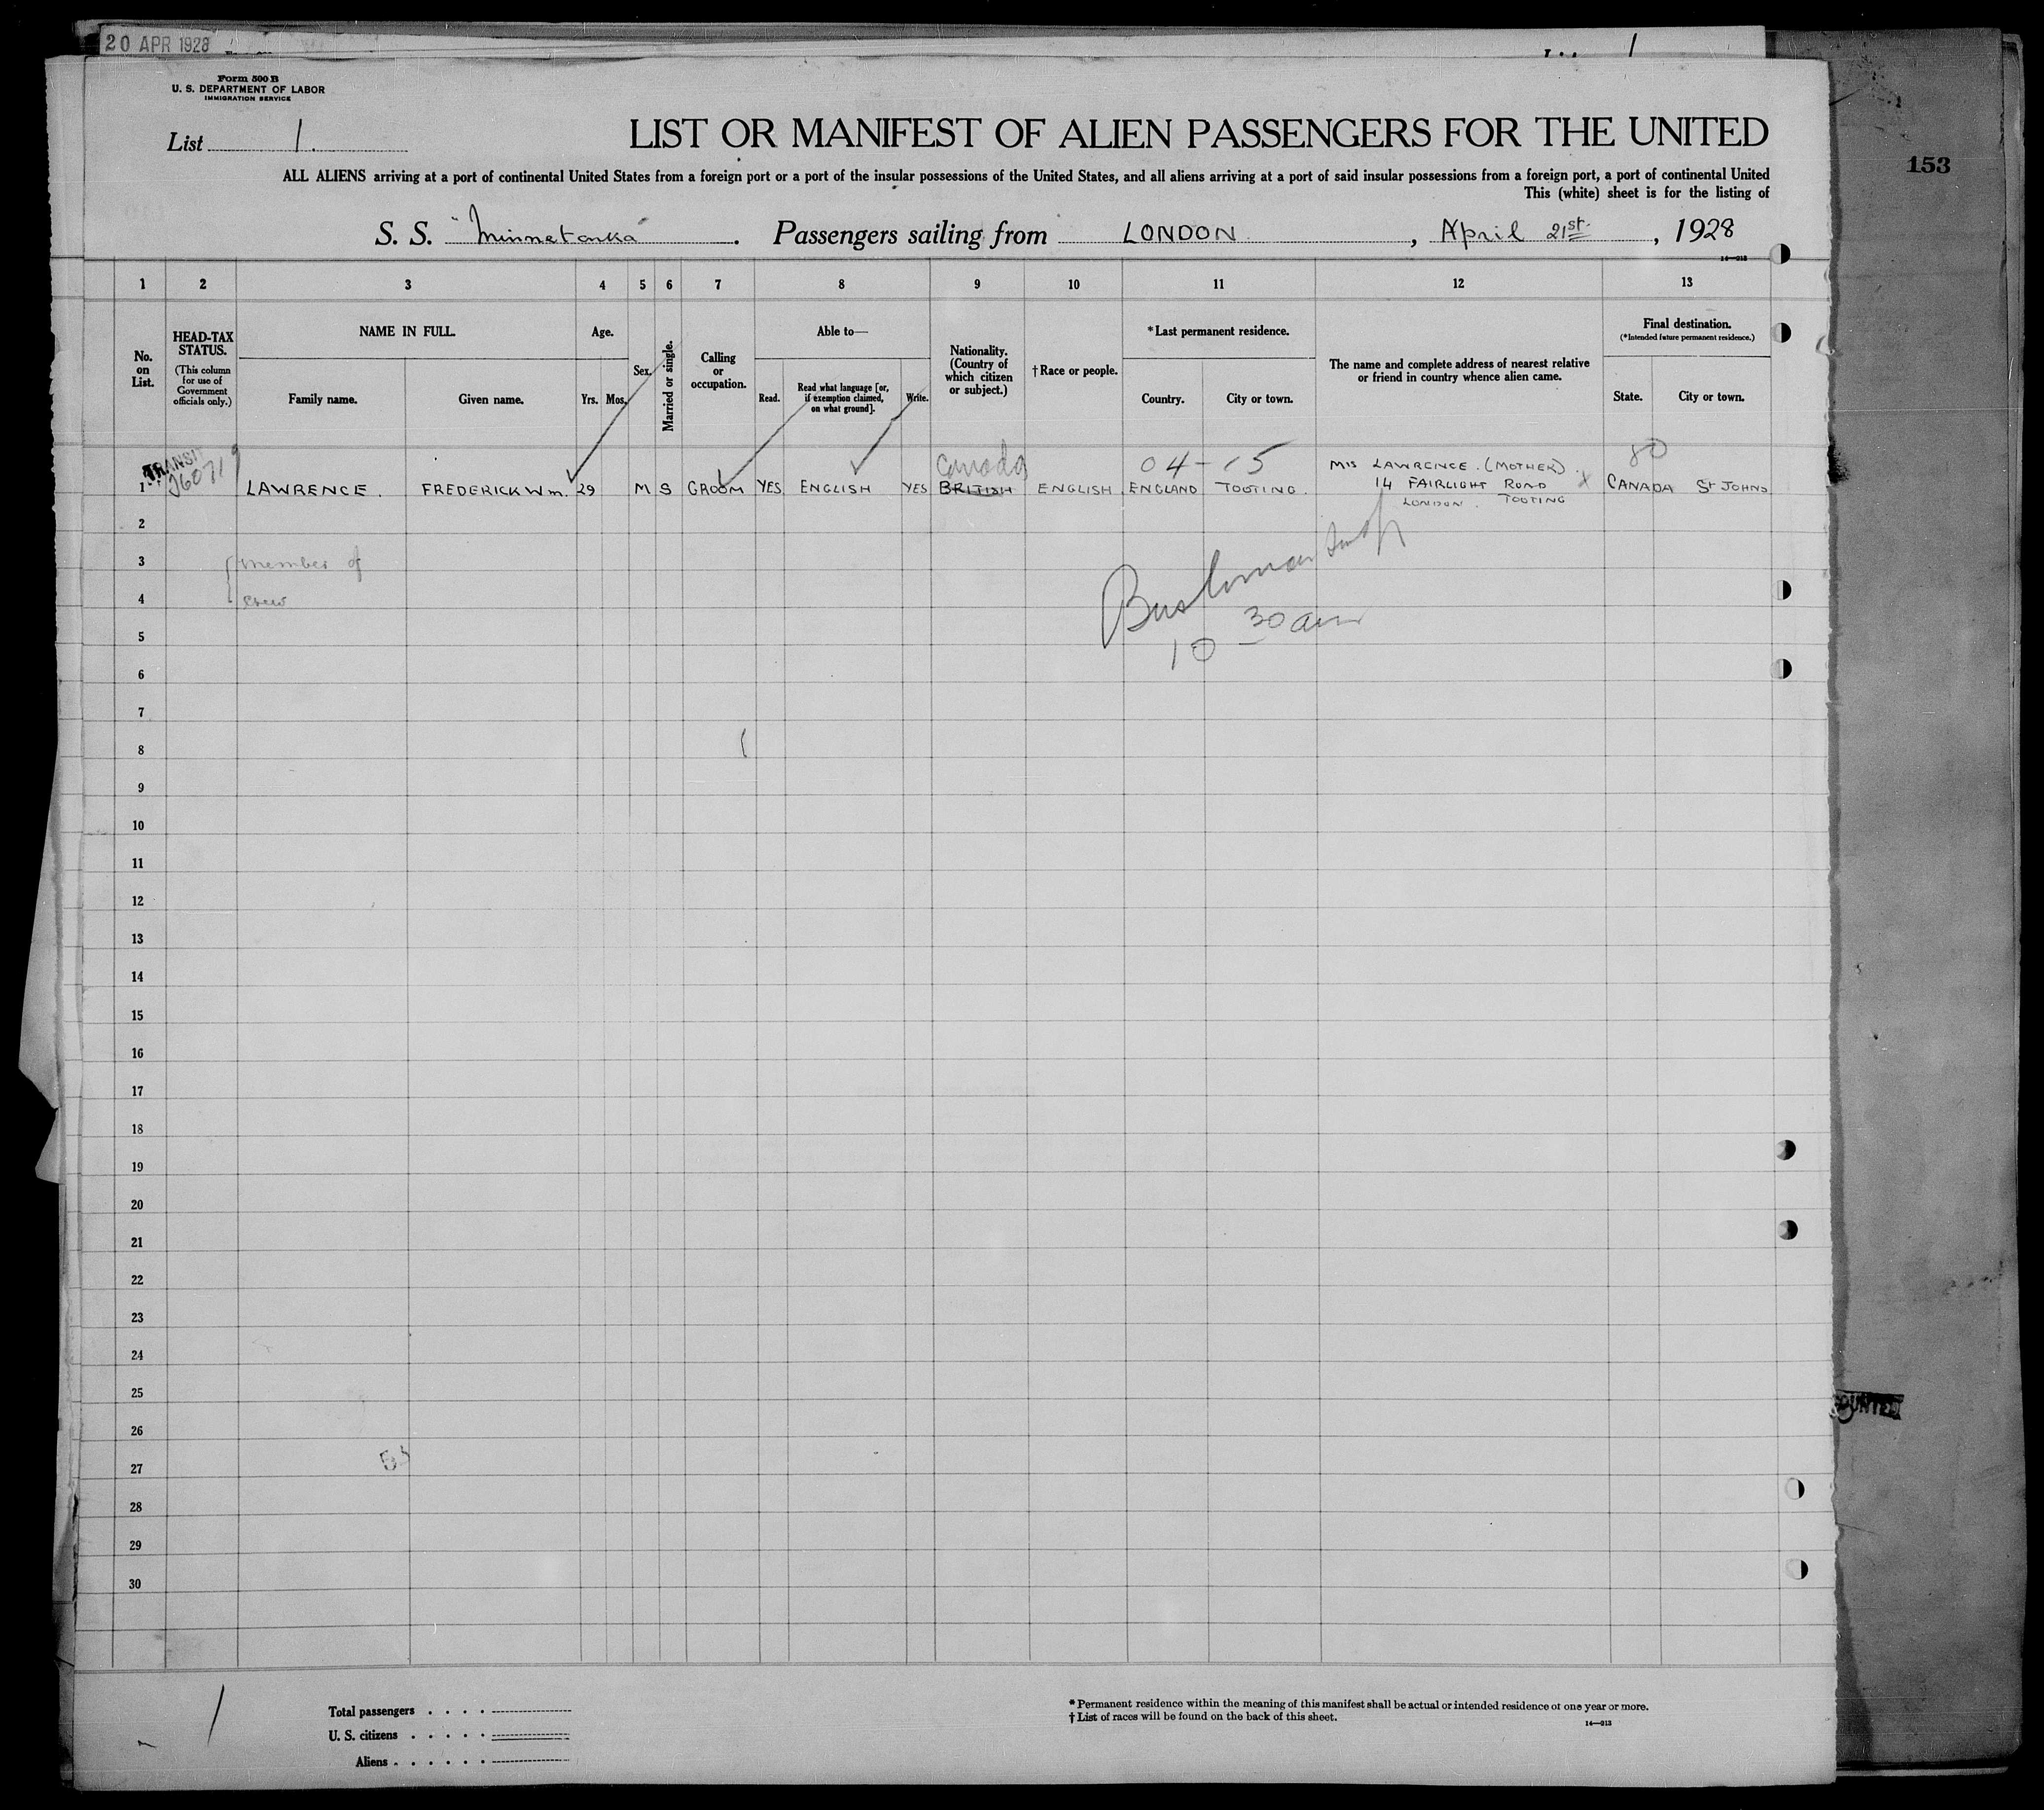 20 APR 1928
1
Form 500 B
U. S. DEPARTMENT OF LABOR
IMMIGRATION SERVICE
List 1.
LIST OR MANIFEST OF ALIEN PASSENGERS FOR THE UNITED
ALL ALIENS arriving at a port of continental United States from a foreign port or a port of the insular possessions of the United States, and all aliens arriving at a port of said insular possessions from a foreign port, a port of continental United
This (white) sheet is for the listing of
153
S. S. "Minnetonka". Passengers sailing from LONDON, April 21st., 1928
14—213
1 2 3 4 5 6 7 8 9 10 11 12 13
No. on List.
HEAD-TAX STATUS.
(This column for use of Government officials only.)
NAME IN FULL.
Family name.
Given name.
Age.
Yrs.
Mos.
Sex.
Married or single.
Calling or occupation.
Able to—
Read.
Read what language [or, if exemption claimed, on what ground].
Write.
Nationality. (Country of which citizen or subject.)
†Race or people.
*Last permanent residence.
Country.
City or town.
The name and complete address of nearest relative or friend in country whence alien came.
Final destination.
(*Intended future permanent residence.)
State.
City or town.
TRANSIT
Canada
04-15
80
1 LAWRENCE. FREDERICK Wm. 29 M S GROOM YES ENGLISH YES BRITISH ENGLISH ENGLAND TOOTING.
MRS LAWRENCE. (MOTHER).
14 FAIRLIGHT ROAD
LONDON. TOOTING
x
CANADA St JOHNS
2
3 member of
4 crew
10 30 am
5
6
7
8
9
10
11
12
13
14
15
16
17
18
19
20
21
22
23
24
25
26
27
28
29
30
COUNTED
1
Total passengers
U. S. citizens
Aliens
*Permanent residence within the meaning of this manifest shall be actual or intended residence of one year or more.
†List of races will be found on the back of this sheet.
14—213